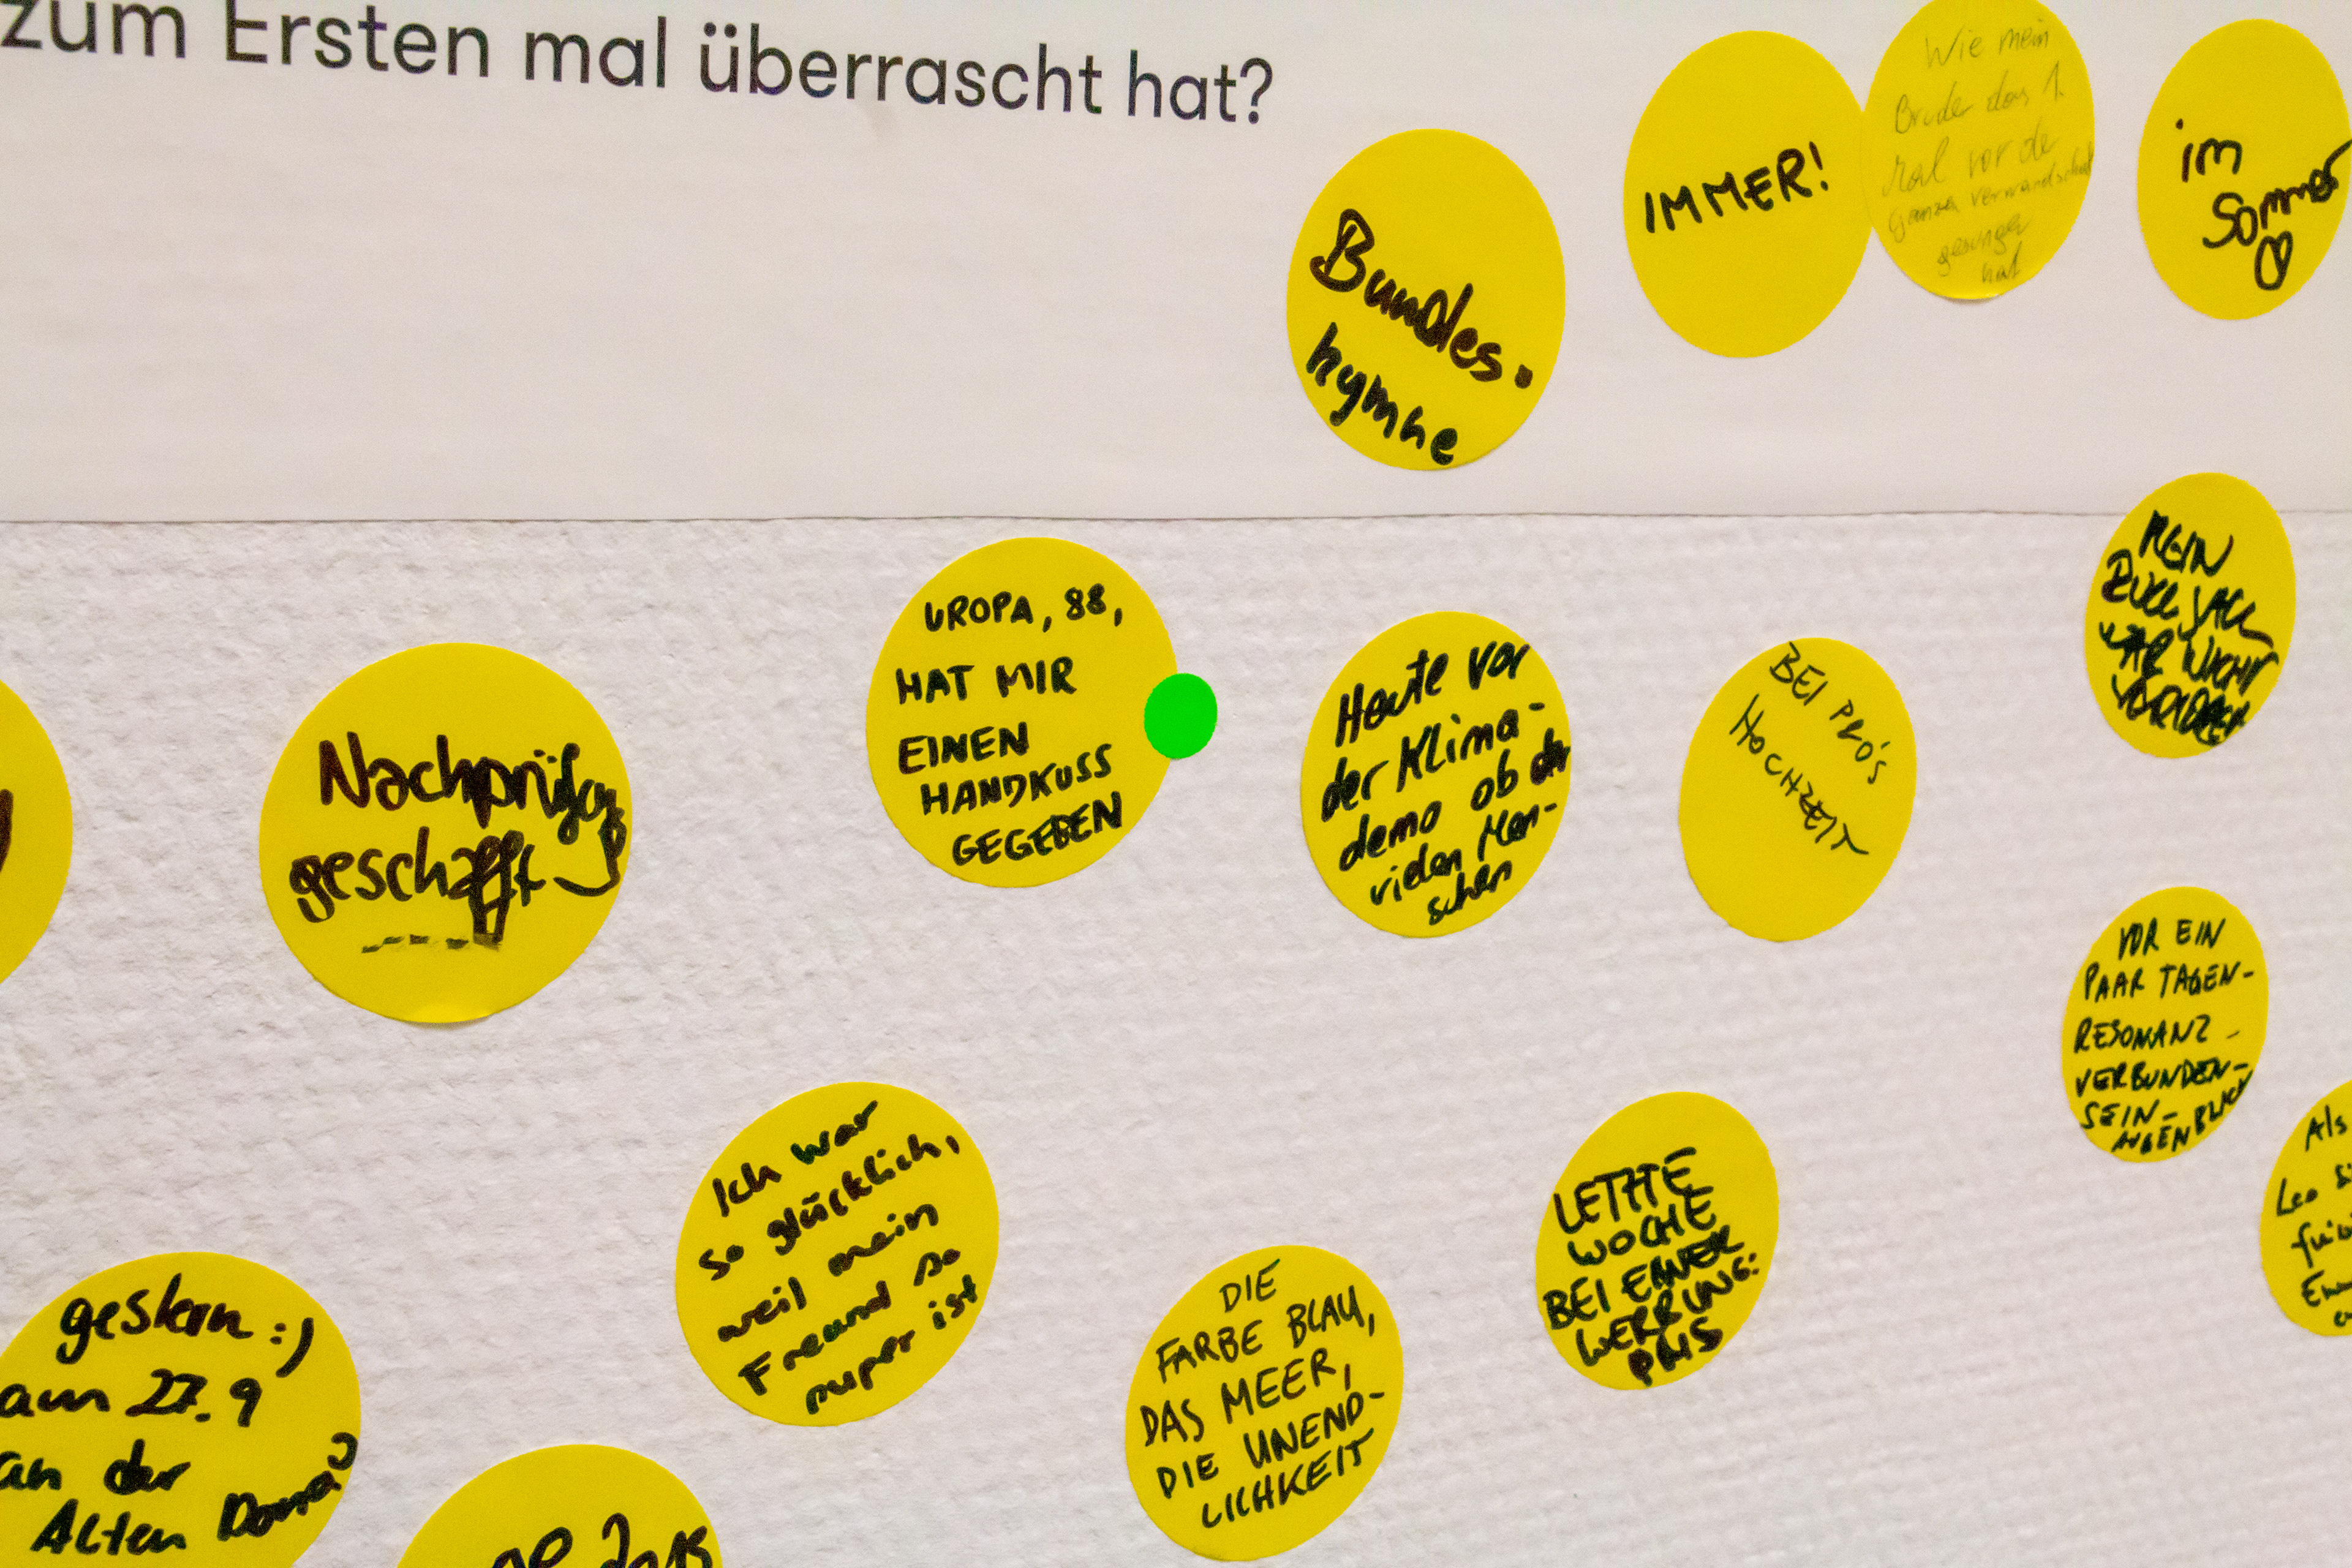 zum Ersten mal überrascht hat?
Wie mein
Bruder das 1.
Mal vor de
ganzen verwandschaft
gesungen
hat
IMMER!
im
Sommer
Bundes-
hymne
MEIN
RUCKSACK
WAR NICHT
UROPA, 88,
HAT MIR
EINEN
HANDKUSS
GEGEBEN
Heute vor
der Klima-
demo ob der
vielen Men-
schen
BEI PRÓ'S
HOCHZEIT
Nachprüfung
geschafft
VOR EIN
PAAR TAGEN-
RESONANZ-
VERBUNDEN-
SEIN-
AUGENBLICK
Ich war
so glücklich,
weil mein
Freund so
super ist
LETZTE
WOCHE
BEI EINER
WERBUNG:
Als
Leo
DIE
FARBE BLAU,
DAS MEER,
DIE UNEND-
LICHKEIT
gestern :)
am 27.9
an der
Alten Donau